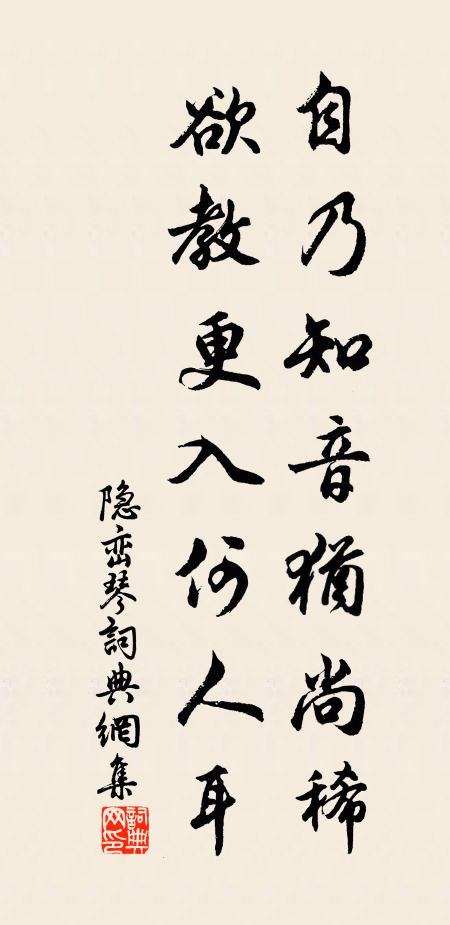 自乃知音犹尚稀
欲教更入何人耳
隐峦琴詞典網集
詞典网印